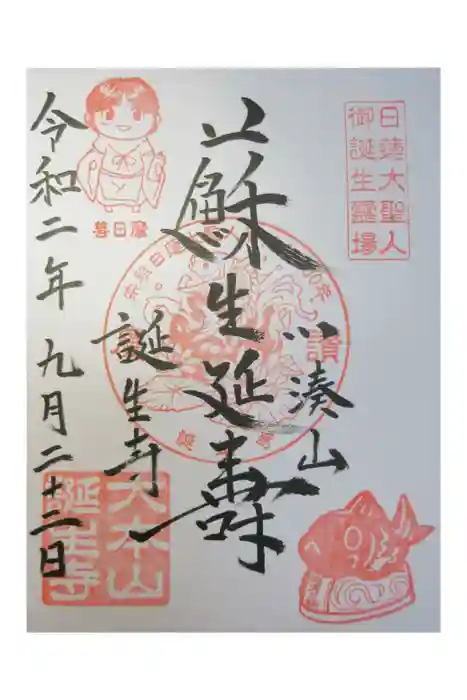 日蓮大聖人
御誕生霊場
小湊山
蘇生延壽
誕生寺
善日麿
令和二年九月二十二日
大本山
誕生寺